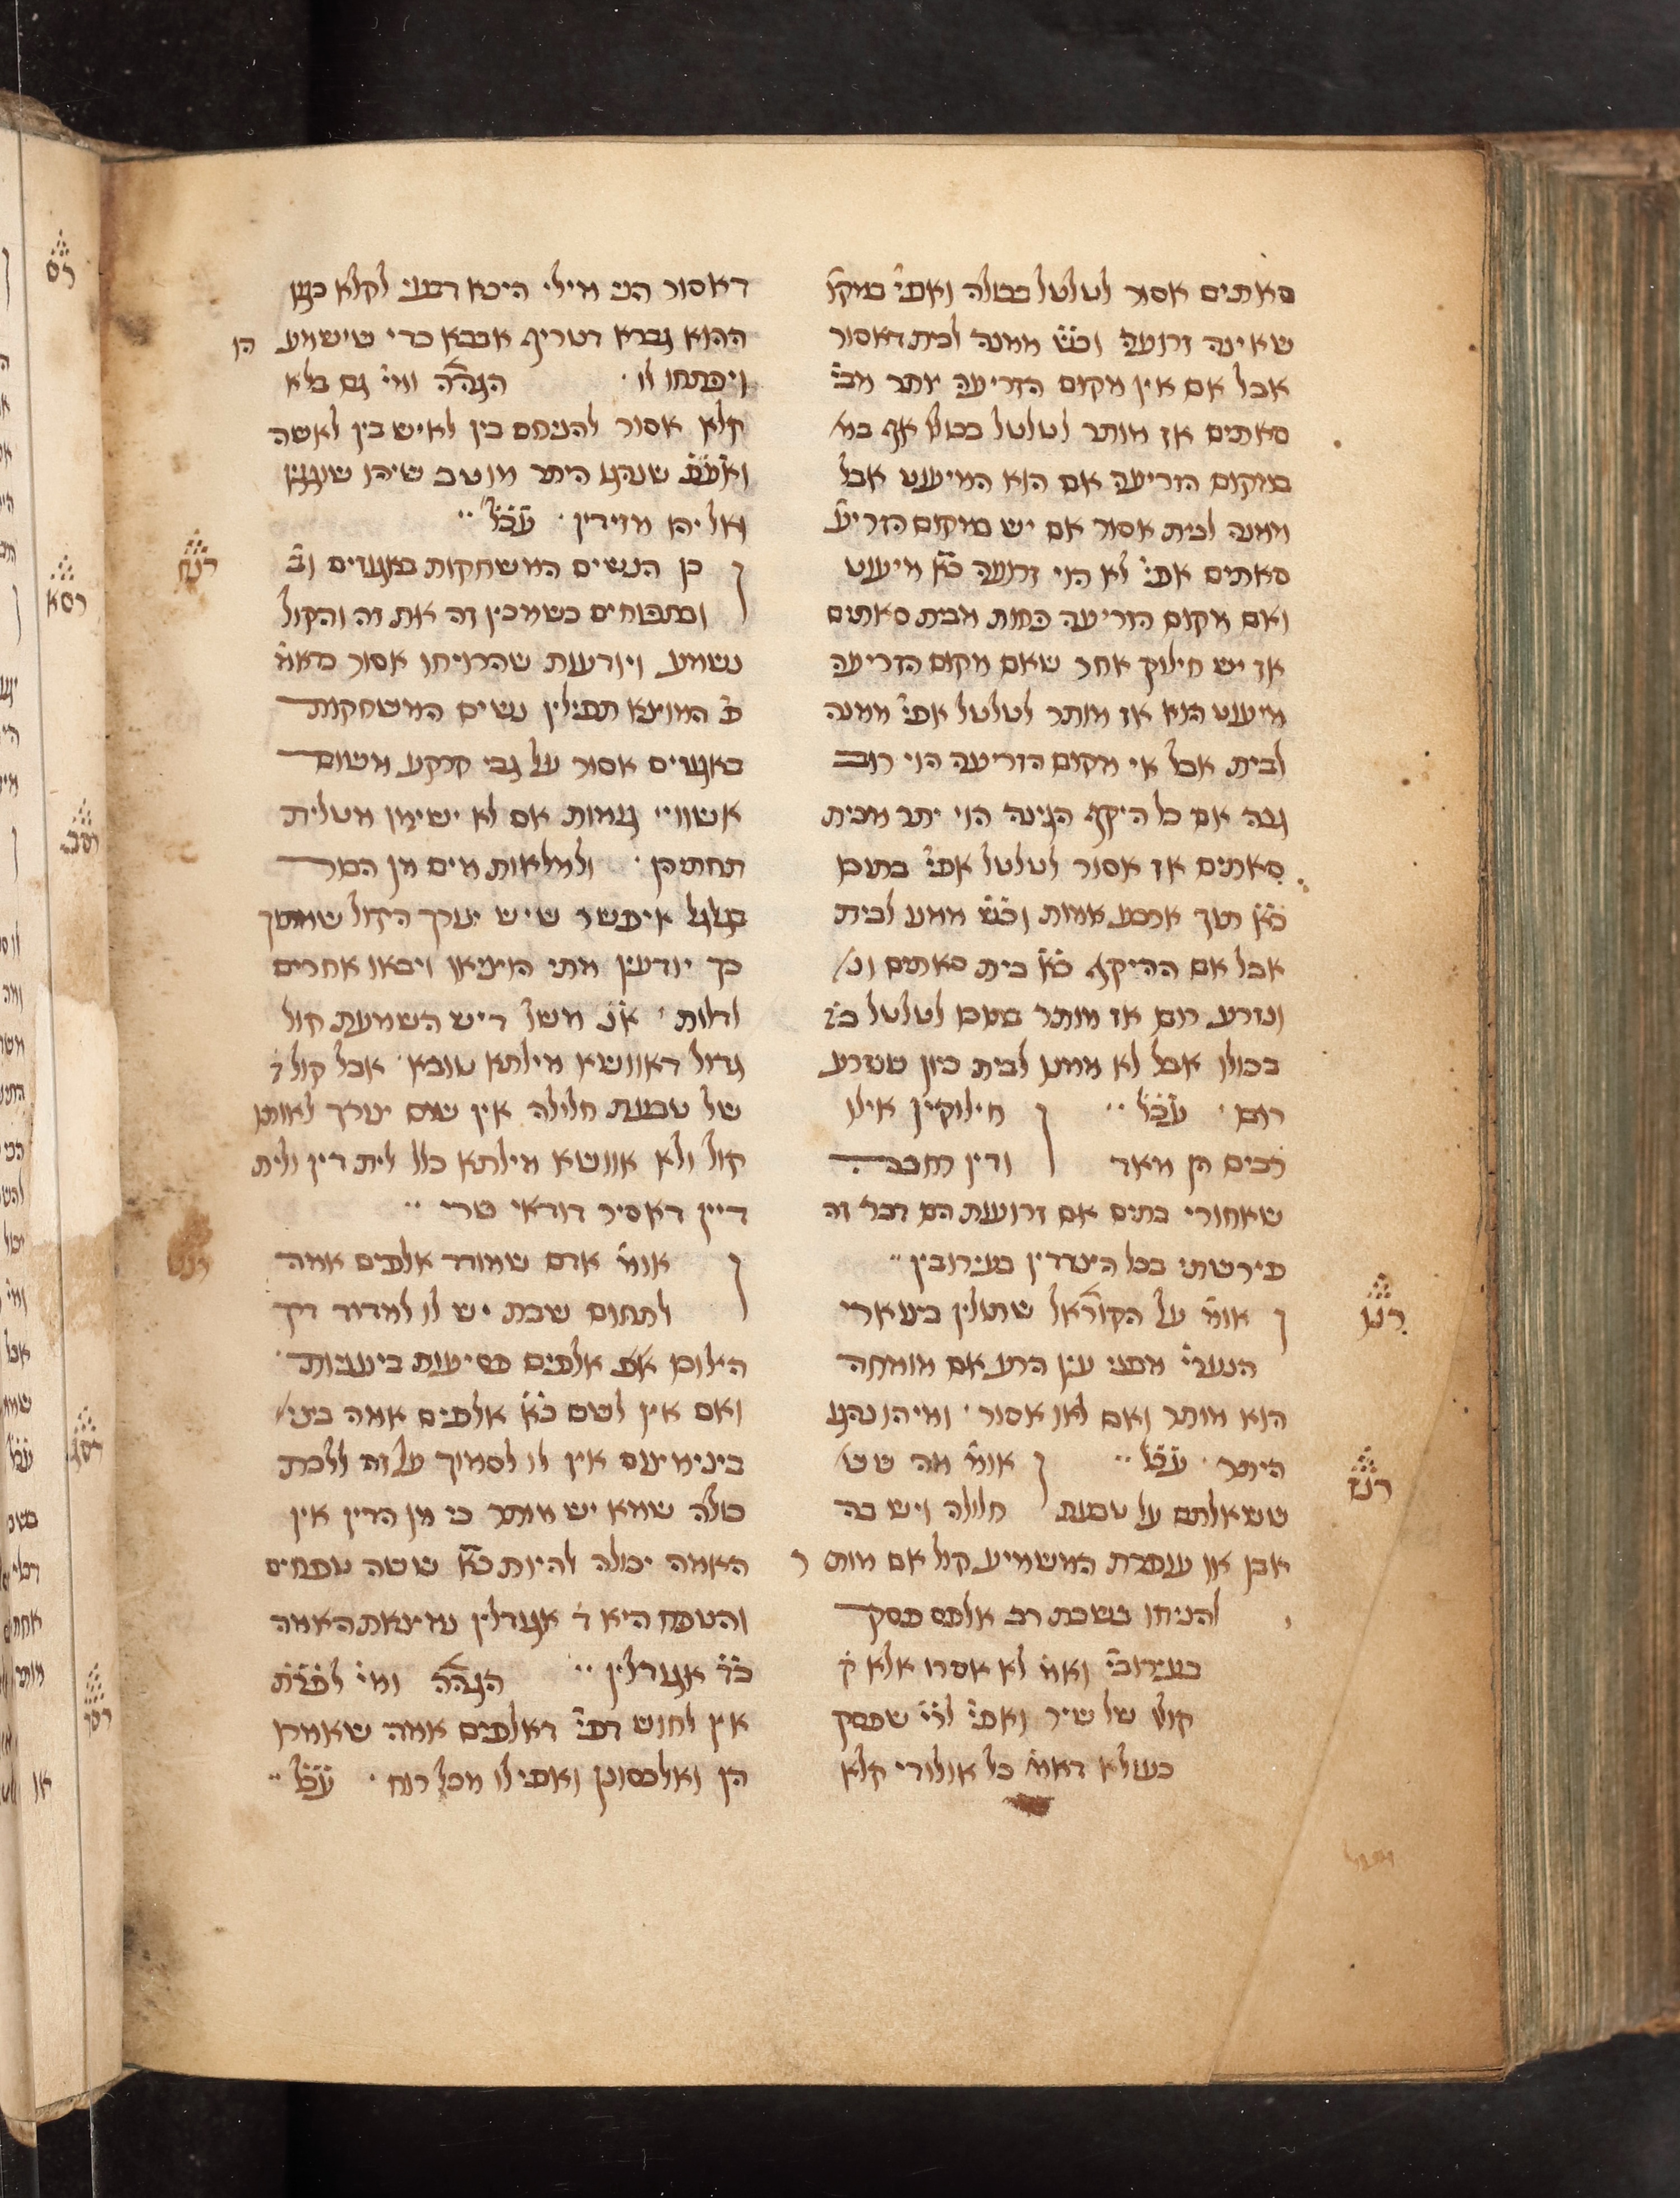 סאתים אסור לטלטל בכולה ואפי' במקו'
שאינה זרועה וכ"ש ממנה לבית דאסור
אבל אם אין מקום הזריעה יותר מבי'
סאתים אז מותר לטלטל בכולו אף במ'
במקום הזריעה אם הוא המיעוט אבל
ממנה לבית אסור אם יש במקום הזריע'
סאתים אפי' לא הוי זרועה כ"א מיעוט
ואם מקום הזריעה פחות מבית סאתים
אז יש חילוק אחר שאם מקום הזריעה
מיעוט הוא אז מותר לטלטל אפי' ממנה
לבית אבל אי מקום הזריעה הוי רוב
גנה אם כל היקף הגינה הוי יתר מבית
סאתים אז אסור לטלטל אפי' בתוכו
כ"א תוך ארבע אמות וכ"ש ממנו לבית
אבל אם ההיקף כ"א בית סאתים וכ'
ונזרע רובו אז מותר בתוכו לטלטל
בכולו אבל לא ממנו לבית כיון שנזרע
רובו עכ"ל
חילוקין אילו
רבים הן מאד ודין רחבה
שאחורי בתים אם זרועות הם דבר זה
פירשתי בכל הצדדין בעירובין
רנו
אומ' על הקוראל שתולין בצוארי
הנערי' מפני עין הרע אם מומחה
הוא מותר ואם לאו אסור ומיהו נהגו
היתר עכ"ל
רנז
אומ' מה שש'
ששאלתם על טבעת חלולה ויש בה
אבן או עופרת המשמיע קול אם מותר
להניחו בשבת רב אלפס פסק
בעירובי' ואמ' לא אסרו אלא ק'
קולו של שיר ואפי' לר"י שפסק
כעולא דאמ' כל אולודי קלא
דאסור הני מילי היכא דבעי לקלא כגון
ההוא גברא דטריף אבבא כדי שישמעו הן
ויפתחו לו הגהה ומי' גם בלא
קלא אסור להניחם בין לאיש בין לאשה
ואע"פ שנהגו היתר מוטב שיהו שוגגין
ואל יהו מזידין עכ"ל
רנח
כן הנשים המשחקות באגוזים וב'
ובתפוחים כשמכין זה את זה והקול
נשמע ויודעות שהרויחו אסור כדאמ'
פ' המוצא תפילין נשים המשחקות
באגוזים אסור על גבי קרקע משום
אשוויי גומות אם לא ישימו מטלית
תחתיהן ולמלאות מים מן הבור
בגלגל איפשר שיש צורך הקול שמתוך
כך יודעין מתי הוציאו ויבאו אחרים
לדלות משל דיש השמעת קול
גדול דאוושא מילתא טובא אבל קול
של טבעת חלולה אין שום צורך לאותו
קול ולא אוושא מילתא כלל לית דין ולית
דיין דאסיר דודאי שרי
רנט
אומ' אדם שמודד אלפים אמה
לתחום שבת יש לו למדוד דרך
הילוכו אפ' אלפים פסיעות בינוניות
ואם אין לשם כ"א אלפים אמה בינו'
בינימינוס אין לו לסמוך על זה ללכת
כולה שמא יש מותר כי מן הדין אין
האמה יכולה להיות כ"א ששה טפחים
והטפח היא ד' אגודלין נמצאת האמה
כ"ד אגודלין הגהה ומי'
אין לחוש דפי' דאלפים אמה שאמרו
הן ואלכסונן ואפילו מכל רוח עכ"ל
רס
רסא
רסב
רסג
רסד